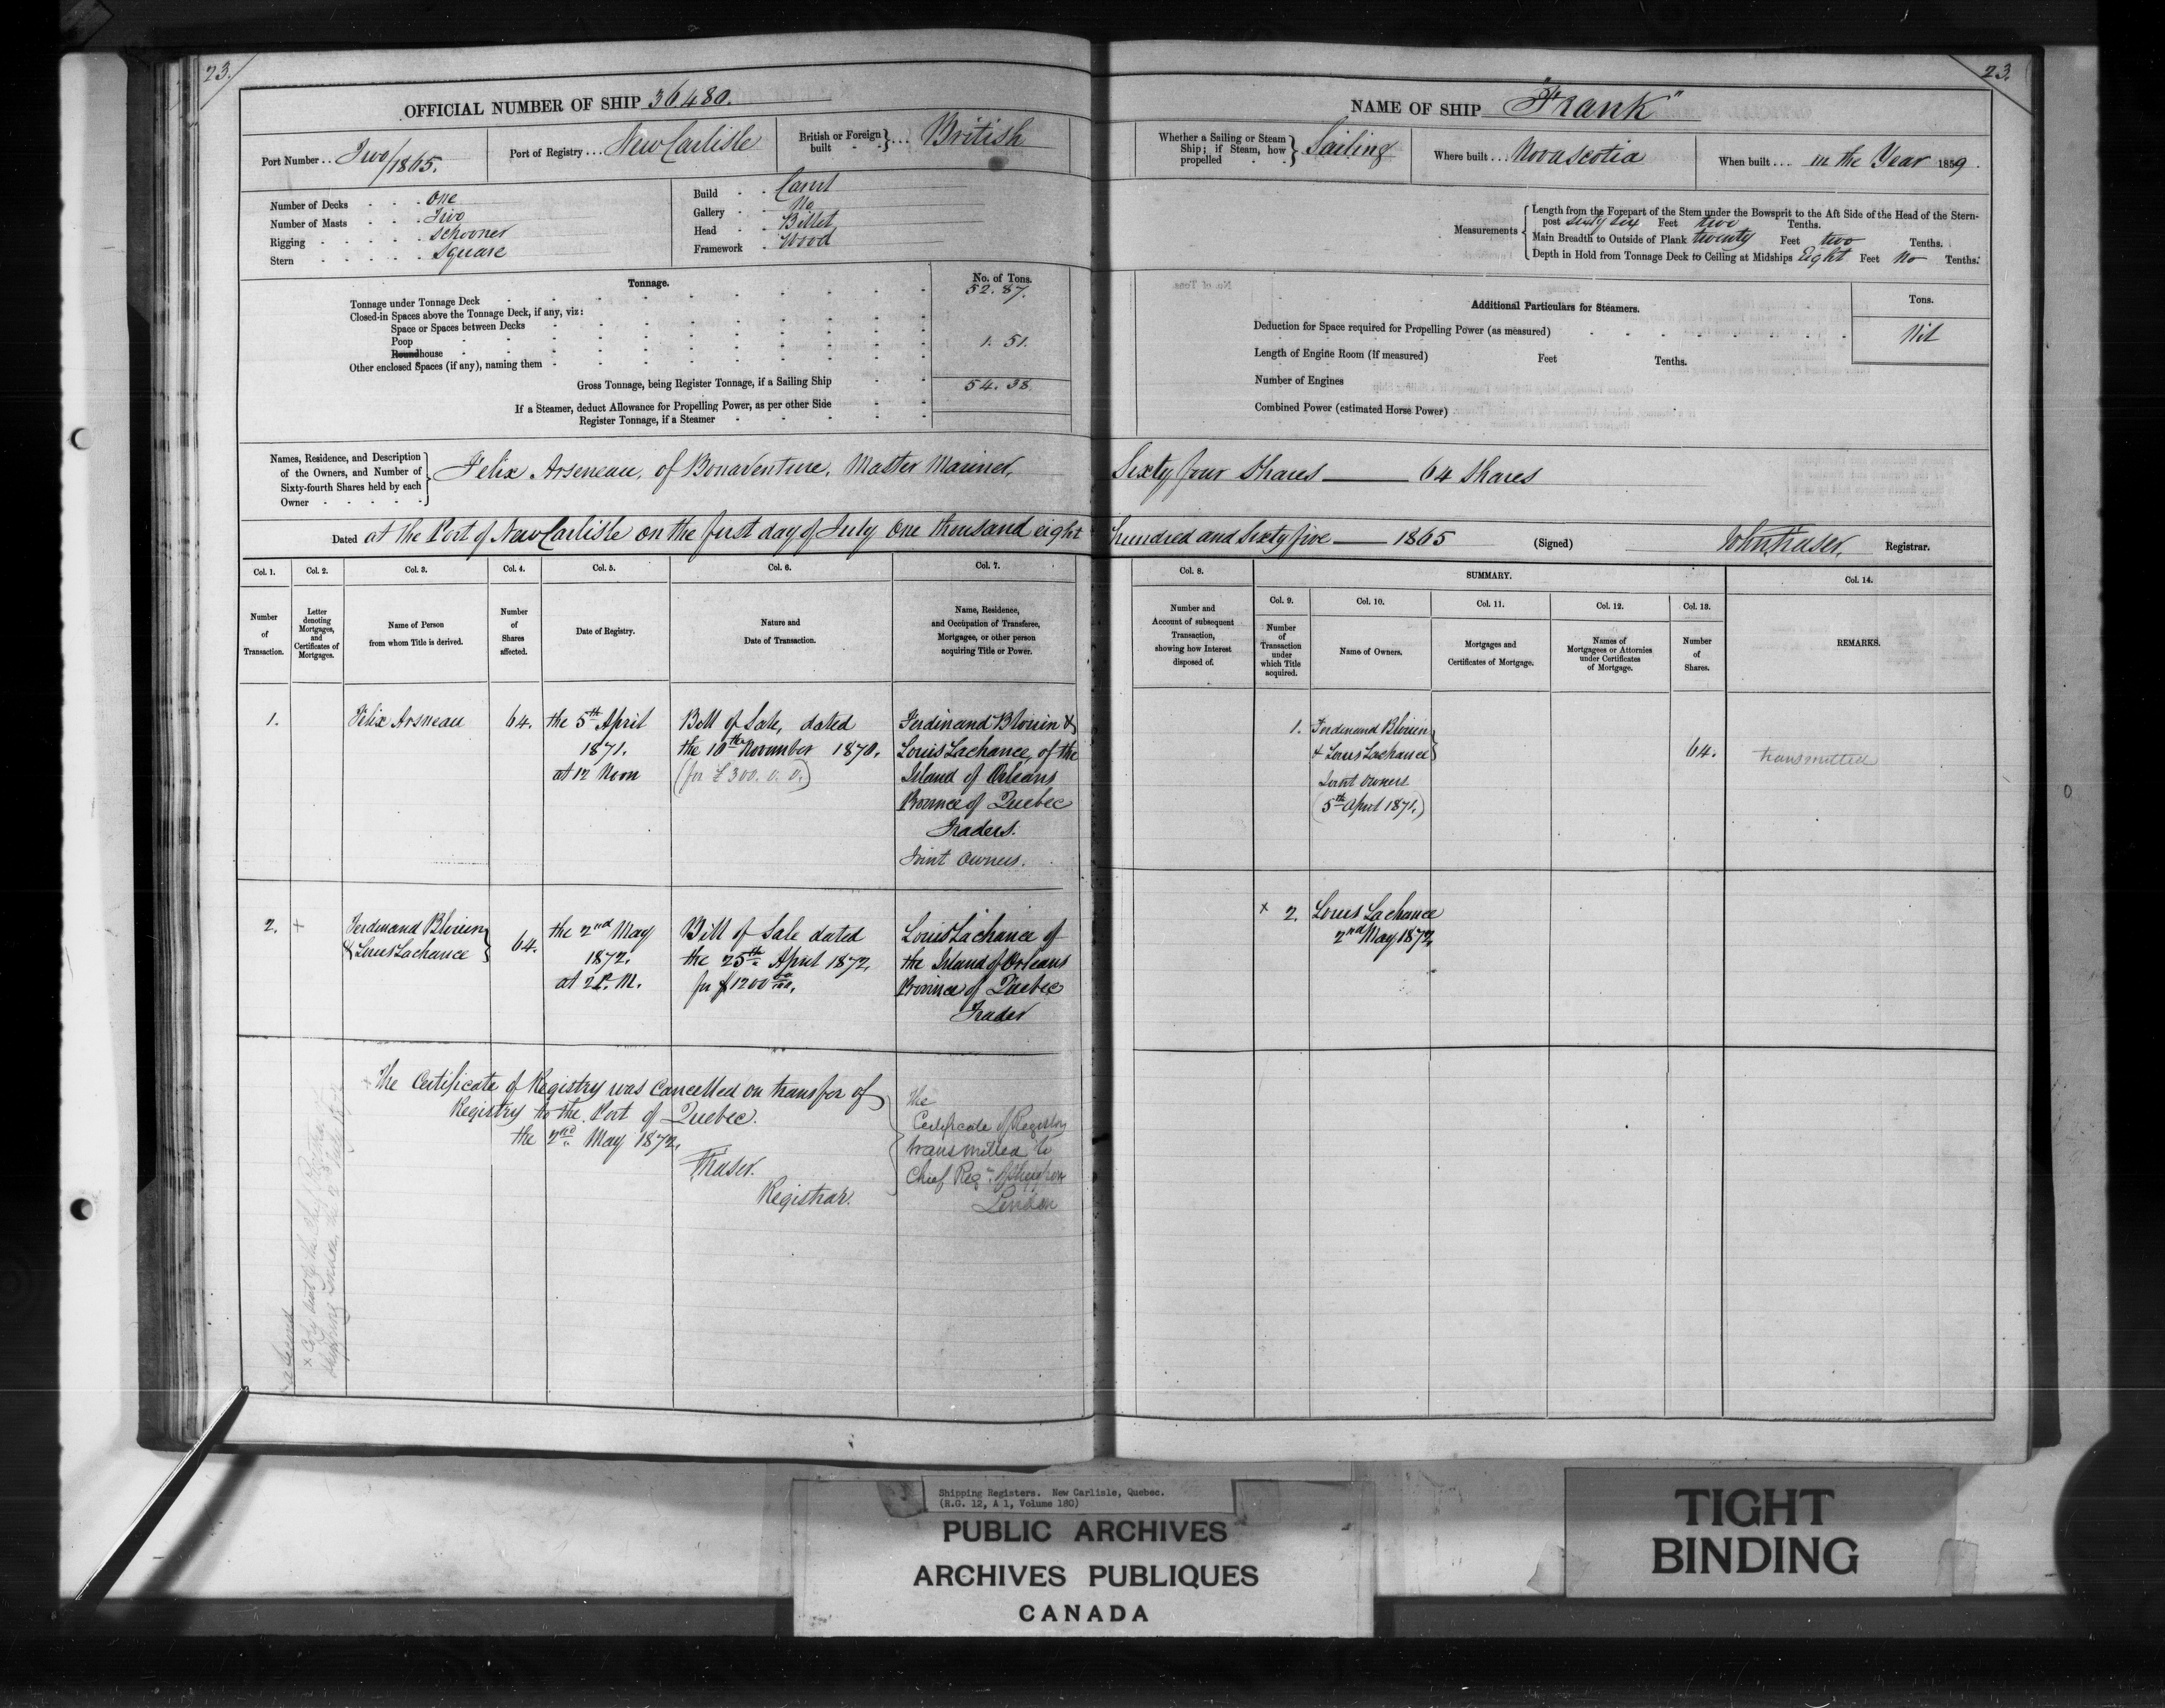 23.
OFFICIAL NUMBER OF SHIP 36480.
Port Number .. Two/1865.
Port of Registry ... New Carlisle
British or Foreign built ... British
Number of Decks One
Number of Masts Two
Rigging Schooner
Stern Square
Build Carvel
Gallery No
Head Billet
Framework Wood
Tonnage.
No. of Tons.
Tonnage under Tonnage Deck 52.87.
Closed-in Spaces above the Tonnage Deck, if any, viz:
Space or Spaces between Decks
Poop
Roundhouse 1. 51.
Other enclosed Spaces (if any), naming them
Gross Tonnage, being Register Tonnage, if a Sailing Ship 54. 38.
If a Steamer, deduct Allowance for Propelling Power, as per other Side
Register Tonnage, if a Steamer
23.
NAME OF SHIP "Frank"
Whether a Sailing or Steam Ship; if Steam, how propelled Sailing
Where built ... Novascotia
When built .... in the Year 1859
Measurements
Length from the Forepart of the Stem under the Bowsprit to the Aft Side of the Head of the Stern-
post sixty six Feet two Tenths.
Main Breadth to Outside of Plank twenty Feet two Tenths.
Depth in Hold from Tonnage Deck to Ceiling at Midships Eight Feet No Tenths.
Additional Particulars for Steamers.
Tons.
Deduction for Space required for Propelling Power (as measured) Nil
Length of Engine Room (if measured) Feet Tenths.
Number of Engines
Combined Power (estimated Horse Power)
Names, Residence, and Description
of the Owners, and Number of
Sixty-fourth Shares held by each
Owner
Felix Arseneau, of Bonaventure, Master Mariner, Sixty four Shares — 64 Shares
Dated at the Port of New Carlisle on the first day of July One thousand eight hundred and sixty five — 1865 (Signed) John Fraser, Registrar.
Col. 1.
Number
of
Transaction.
Col. 2.
Letter
denoting
Mortgages,
and
Certificates of
Mortgages.
Col. 3.
Name of Person
from whom Title is derived.
Col. 4.
Number
of
Shares
affected.
Col. 5.
Date of Registry.
Col. 6.
Nature and
Date of Transaction.
Col. 7.
Name, Residence,
and Occupation of Transferee,
Mortgagee, or other person
acquiring Title or Power.
Col. 8.
Number and
Account of subsequent
Transaction,
showing how Interest
disposed of.
SUMMARY.
Col. 9.
Number
of
Transaction
under
which Title
acquired.
Col. 10.
Name of Owners.
Col. 11.
Mortgages and
Certificates of Mortgage.
Col. 12.
Names of
Mortgagees or Attornies
under Certificates
of Mortgage.
Col. 13.
Number
of
Shares.
Col. 14.
REMARKS.
1.
Felix Arsneau
64.
the 5th April
1871.
at 12 Noon
Bill of Sale, dated
the 10th November 1870.
(for £300. 0. 0.)
Ferdinand Blouin &
Louis Lachance, of the
Island of Orleans
Province of Quebec
Traders.
Joint Owners.
1.
Ferdinand Blouin
& Louis Lachance
Joint Owners
(5th April 1871.)
64.
transmitted
2.
+
Ferdinand Blouin
& Louis Lachance
64.
the 2nd May
1872.
at 2 P.M.
Bill of Sale dated
the 25th April 1872,
for $1200 00/100.
Louis Lachance of
the Island of Orleans
Province of Quebec
Trader
x 2.
Louis Lachance
2nd May 1872,
The Certificate of Registry was Cancelled on transfer of
Registry to the Port of Quebec.
the 2nd May 1872,
Fraser.
Registrar.
The
Certificate of Registry
transmitted to
Chief Regr. of Shipping
London
Shipping Registers. New Carlisle, Quebec.
(R.G. 12, A 1, Volume 180)
PUBLIC ARCHIVES
ARCHIVES PUBLIQUES
CANADA
TIGHT
BINDING